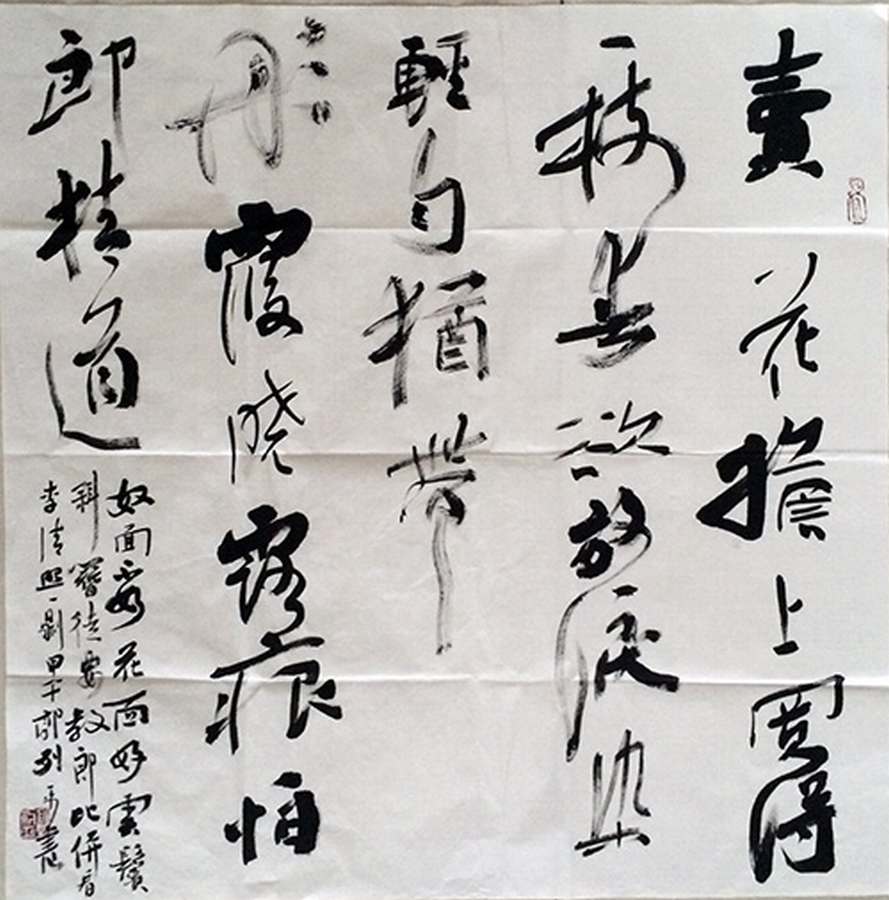 賣花擔上買得
一枝春欲放淚染
輕勻猶帶
彤霞晓露痕怕
郎猜道
奴面不如花面好雲鬢
斜簪徒要教郎比併看
李清照 甲午